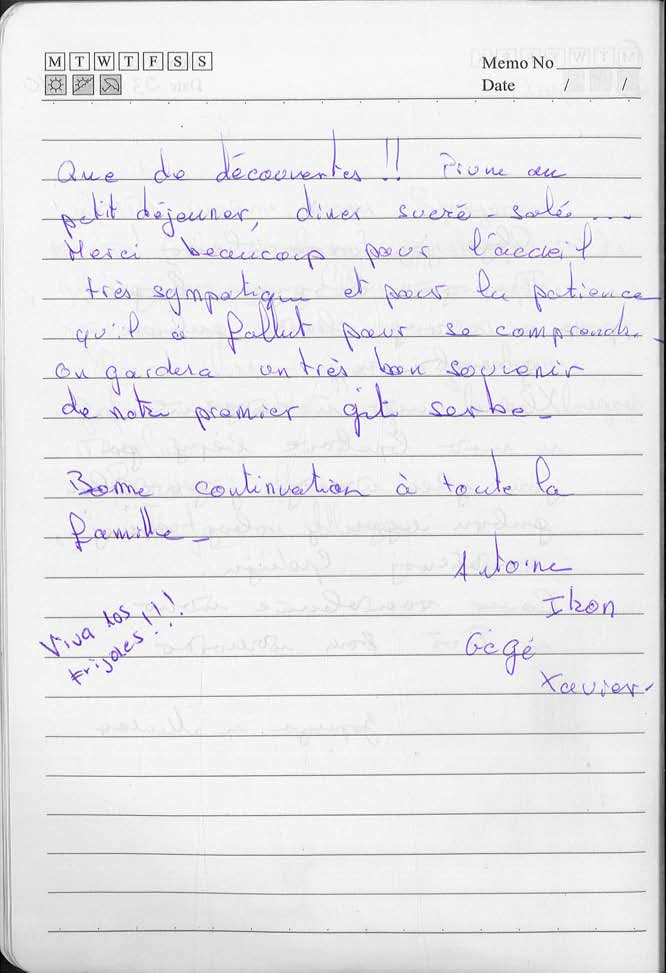 M T W T F S S
Memo No
Date / /
Que de découvertes !! Prune au
petit déjeuner, diner sucré-salée ...
Merci beaucoup pour l'accueil
très sympatique et pour la patience
qu'il à fallut pour se comprendre.
On gardera un très bon souvenir
de notre premier gite serbe -
Bonne continuation à toute la
famille -
Antoine
Ikon
Gégé
Xavier.
Viva los
frijoles !!!